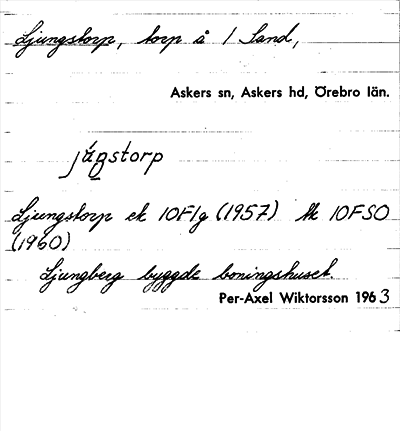 Ljungstorp, torp å 1 Sand,
Askers sn, Askers hd, Örebro län.
júŋstorp
Ljungstorp ek 10F1g (1957) tk 10FSO
(1960)
Ljungberg byggde boningshuset.
Per-Axel Wiktorsson 1963